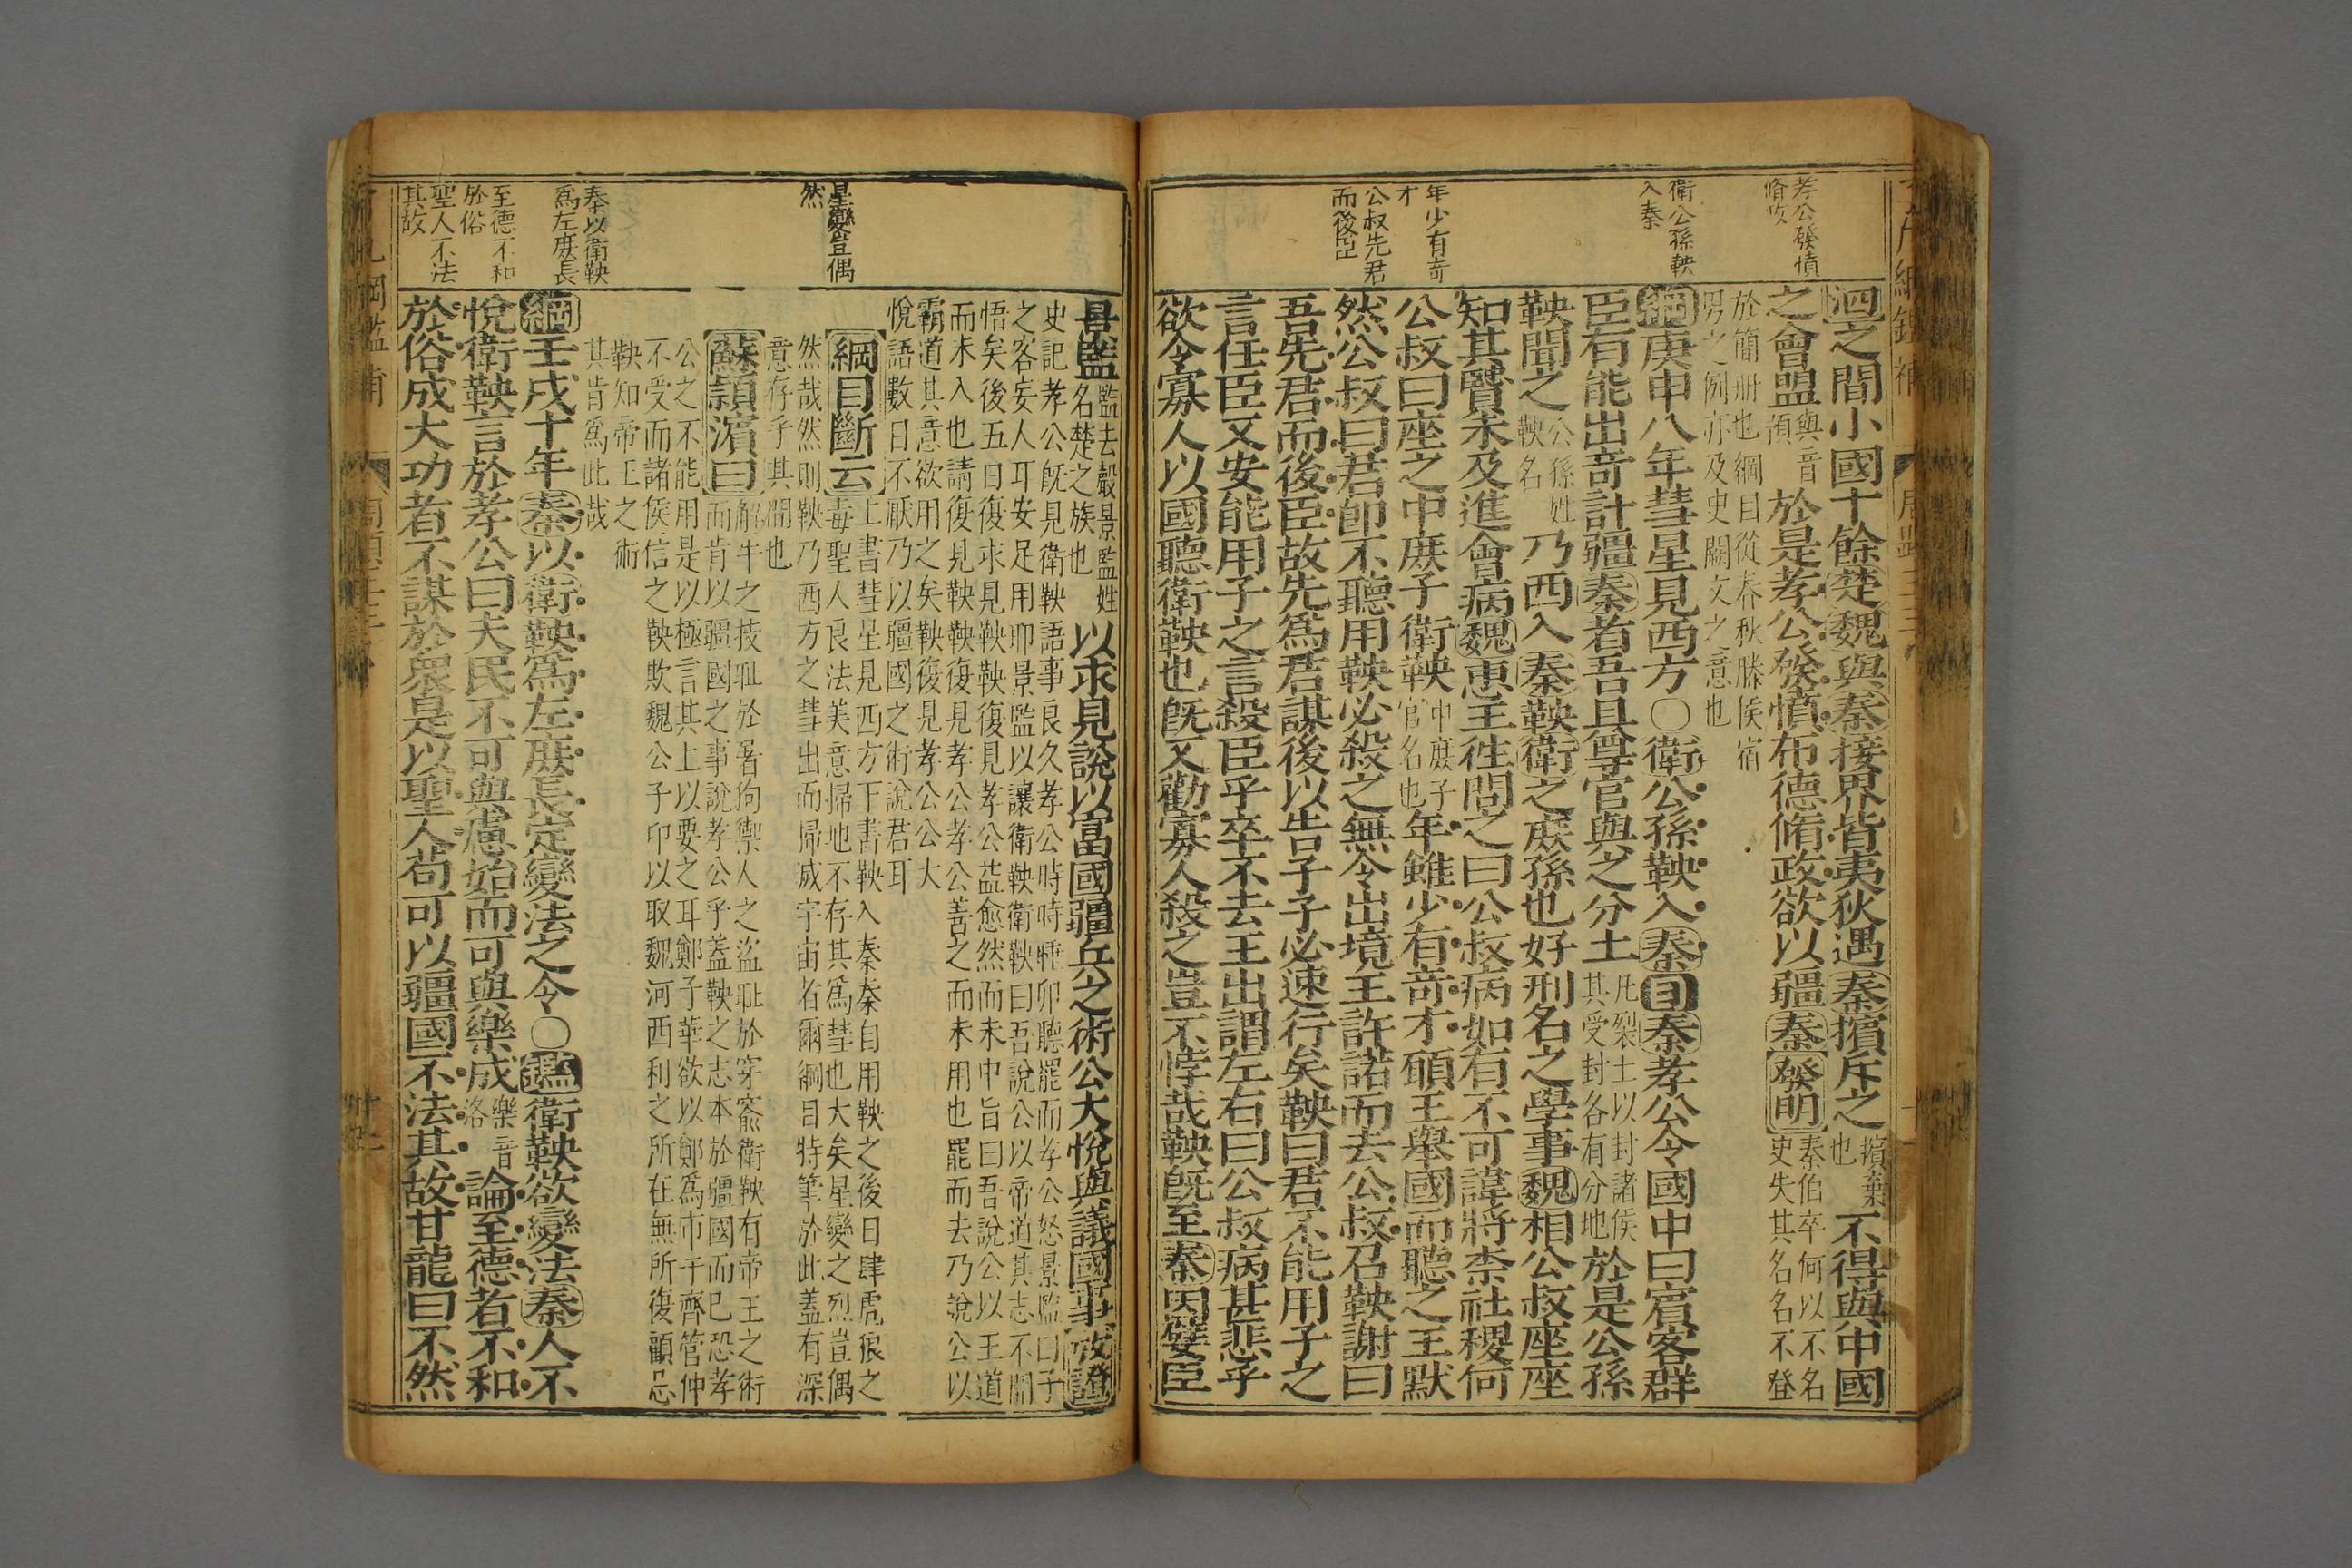 孝公發憤
脩政
衛公孫鞅
入秦
年少有奇
才
公叔先君
而後臣
泗之間小國十餘楚魏與秦接界皆夷狄遇秦擯斥之擯棄也不得與中國
之會盟與音預於是孝公發憤布德脩政欲以疆秦發明秦伯卒何以不名史失其名名不登
於簡册也綱曰從春秋滕侯宿
男之例亦及史闕文之意也
綱庚申八年彗星見西方○衛公孫鞅入秦目秦孝公令國中曰賔客群
臣有能出奇計疆秦者吾且尊官與之分土凡裂土以封諸侯其受封各有分地於是公孫
鞅聞之公孫姓鞅名乃西入秦鞅衛之庶孫也好刑名之學事魏相公叔座座
知其賢未及進會病魏惠王徃問之曰公叔病如有不可諱將柰社稷何
公叔曰座之中庶子衛鞅中庶子官名也年雖少有奇才碩王舉國而聽之王默
然公叔曰君卽不聽用鞅必殺之無令出境王許諾而去公叔召鞅謝曰
吾先君而後臣故先爲君謀後以告子子必速行矣鞅曰君不能用子之
言任臣又安能用子之言殺臣乎卒不去王出謂左右曰公叔病甚悲乎
欲令寡人以國聽衛鞅也旣又勸寡人殺之豈不悖哉鞅旣至秦因嬖臣
星變豈偶
然
秦以衛鞅
爲左庶長
至德不和
於俗
聖人不法
其故
景監監去聲景監姓名楚之族也以求見說以富國疆兵之術公大悅與議國事攷證
史記孝公旣見衛鞅語事良久孝公時時睡卯聽罷而孝公怒景監曰子
之客妄人耳安足用耶景監以讓衛鞅衛鞅曰吾說公以帝道其志不開
悟矣後五日復求見鞅鞅復見孝公益愈然而未中旨曰吾說公以王道
而未入也請復見鞅鞅復見孝公孝公善之而未用也罷而去乃說公以
霸道其意欲用之矣鞅復見孝公公大
悅語數日不厭乃以疆國之術說君耳
綱目斷云上書彗星見西方下書鞅入秦秦自用鞅之後日肆虎狼之
毒聖人良法美意掃地不存其爲彗也大矣星變之烈豈偶
然哉然則鞅乃西方之彗出而掃滅宇宙者爾綱目特筆於此蓋有深
意存乎其間也
蘇頴濵曰解牛之技耻於屠狗禦人之盜耻於穿窬衛鞅有帝王之術
而肯以疆國之事說孝公乎蓋鞅之志本於疆國而巳恐孝
公之不能用是以極言其上以要之耳鄭子華欲以鄭爲市于齊管仲
不受而諸侯信之鞅欺魏公子卬以取魏河西利之所在無所復顧忌
鞅知帝王之術
其肯爲此哉
綱壬戌十年秦以衛鞅爲左庶長定變法之令○鑑衛鞅欲變法秦人不
悅衛鞅言於孝公曰夫民不可與慮始而可與樂成樂音洛論至德者不和
於俗成大功者不謀於衆是以聖人茍可以疆國不法其故甘龍曰不然